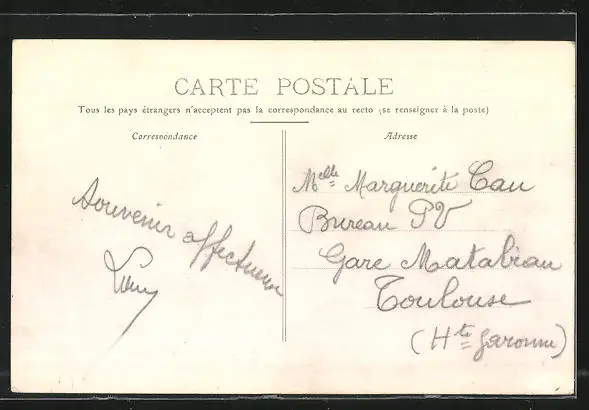 CARTE POSTALE
Tous les pays étrangers n'acceptent pas la correspondance au recto (se renseigner à la poste)
Correspondance
Souvenir affectueux
Adresse
Melle Marguerite Cau
Bureau PV
Gare Matabiau
Toulouse
(Hte Garonne)